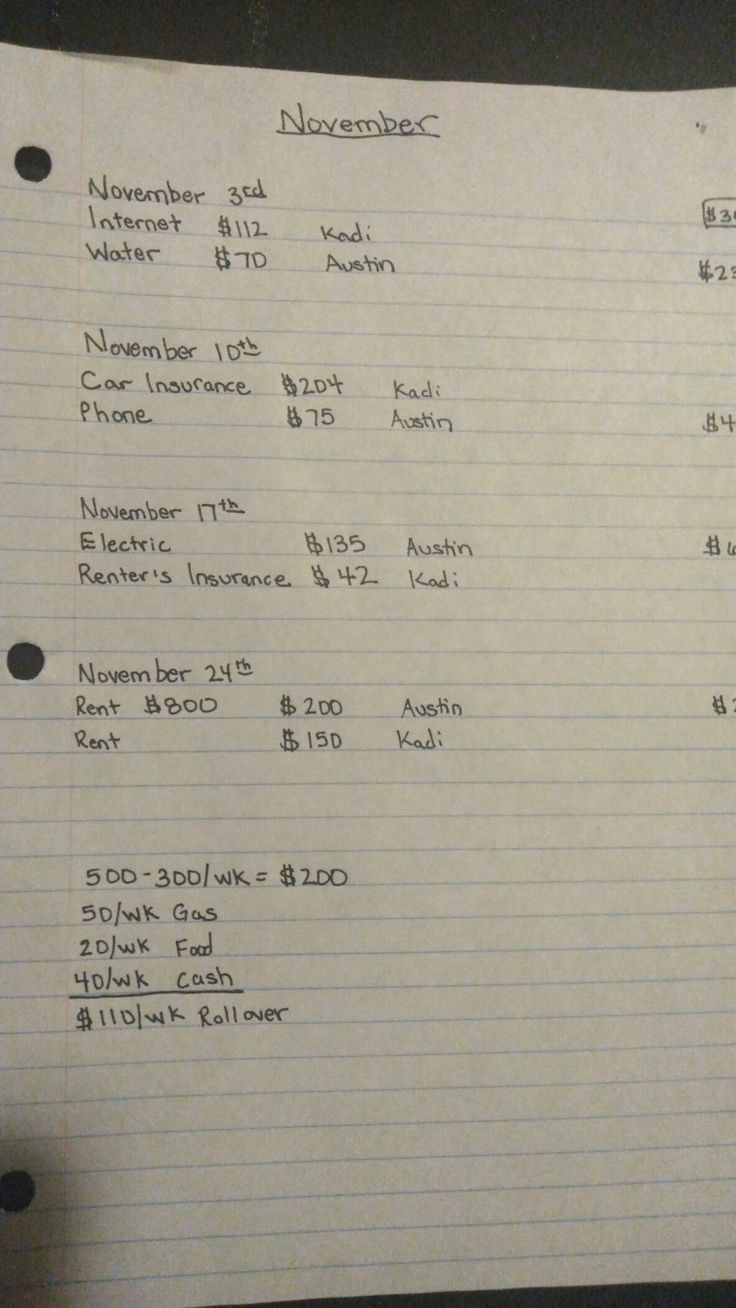 November
November 3rd
Internet $112 Kadi
Water $70 Austin
November 10th
Car Insurance $204 Kadi
Phone $75 Austin
November 17th
Electric $135 Austin
Renter's Insurance $42 Kadi
November 24th
Rent $800 $200 Austin
Rent $150 Kadi
500-300/wk = $200
50/wk Gas
20/wk Food
40/wk Cash
$110/wk Rollover